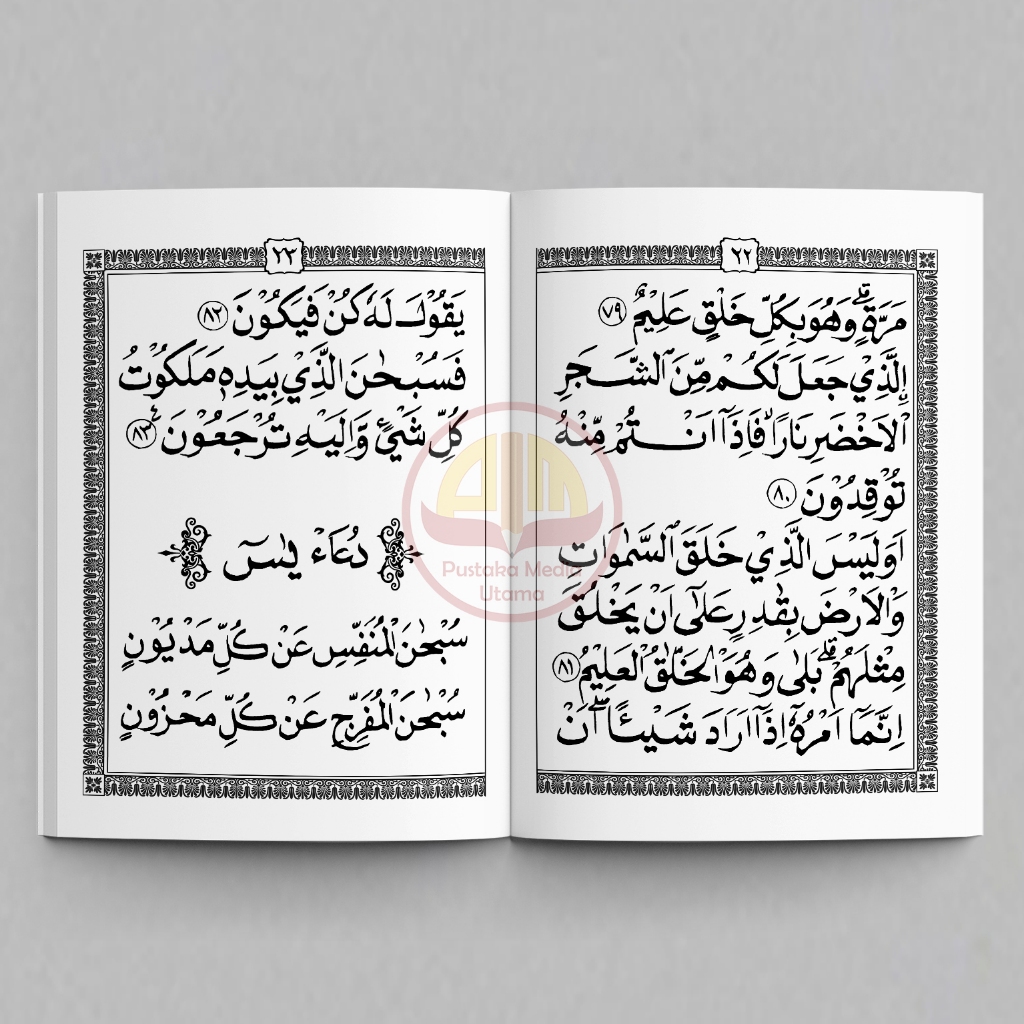 ٢٢
مَرَّةٍۗ وَهُوَ بِكُلِّ خَلْقٍ عَلِيْمٌۙ ﴿٧٩﴾
اِلَّذِيْ جَعَلَ لَكُمْ مِّنَ الشَّجَرِ
الْاَخْضَرِ نَارًاۙ فَاِذَآ اَنْتُمْ مِّنْهُ
تُوْقِدُوْنَ ﴿٨٠﴾
اَوَلَيْسَ الَّذِيْ خَلَقَ السَّمٰوٰتِ
وَالْاَرْضَ بِقٰدِرٍ عَلٰٓى اَنْ يَّخْلُقَ
مِثْلَهُمْۗ بَلٰى وَهُوَ الْخَلّٰقُ الْعَلِيْمُ ﴿٨١﴾
اِنَّمَآ اَمْرُهٗٓ اِذَآ اَرَادَ شَيْـًٔاۖ اَنْ
٢٣
يَقُوْلَ لَهٗ كُنْ فَيَكُوْنَ ﴿٨٢﴾
فَسُبْحٰنَ الَّذِيْ بِيَدِهٖ مَلَكُوْتُ
كُلِّ شَيْءٍ وَّاِلَيْهِ تُرْجَعُوْنَ ﴿٨٣﴾
دُعَاءْ يٰسٓ
سُبْحٰنَ الْمُنَفِّسِ عَنْ كُلِّ مَدْيُوْنٍ
سُبْحٰنَ الْمُفَرِّجِ عَنْ كُلِّ مَحْزُوْنٍ
Pustaka Media
Utama